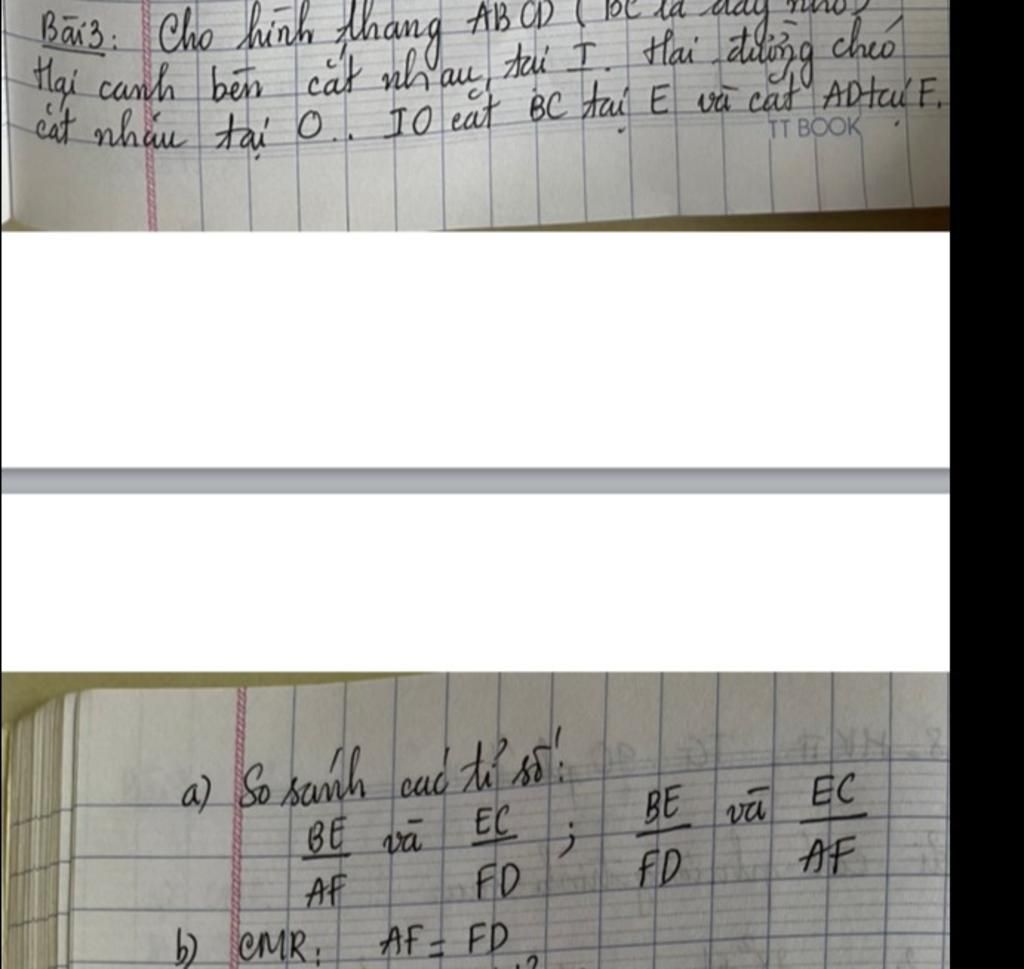 Bài 3: Cho hình thang ABCD ( BC là đáy nhỏ)
Hai cạnh bên cắt nhau tại I. Hai đường chéo
cắt nhau tại O.. IO cắt BC tại E và cắt AD tại F.
TT BOOK
a) So sánh các tỉ số:
BE/AF và EC/FD ; BE/FD và EC/AF
b) CMR: AF = FD